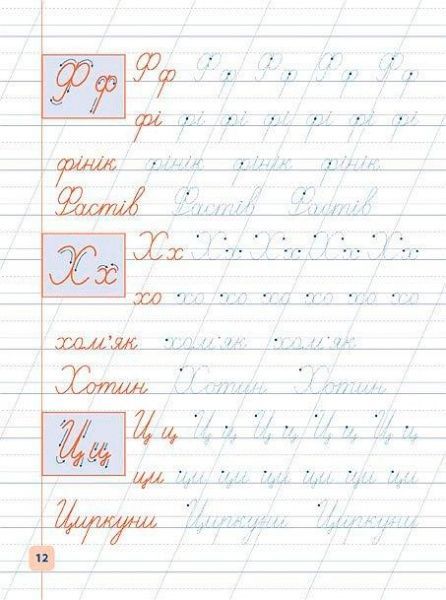 Ф ф Ф ф Ф ф Ф ф Ф ф Ф ф
фі фі фі фі фі фі фі
фінік фінік фінік фінік
Фастів Фастів Фастів
Х х Х х Х х Х х Х х Х х
хо хо хо хо хо хо хо
хом'як хом'як хом'як
Хотин Хотин Хотин
Ц ц Ц ц Ц ц Ц ц Ц ц Ц ц
ци ци ци ци ци ци ци
Циркуни Циркуни Циркуни
12